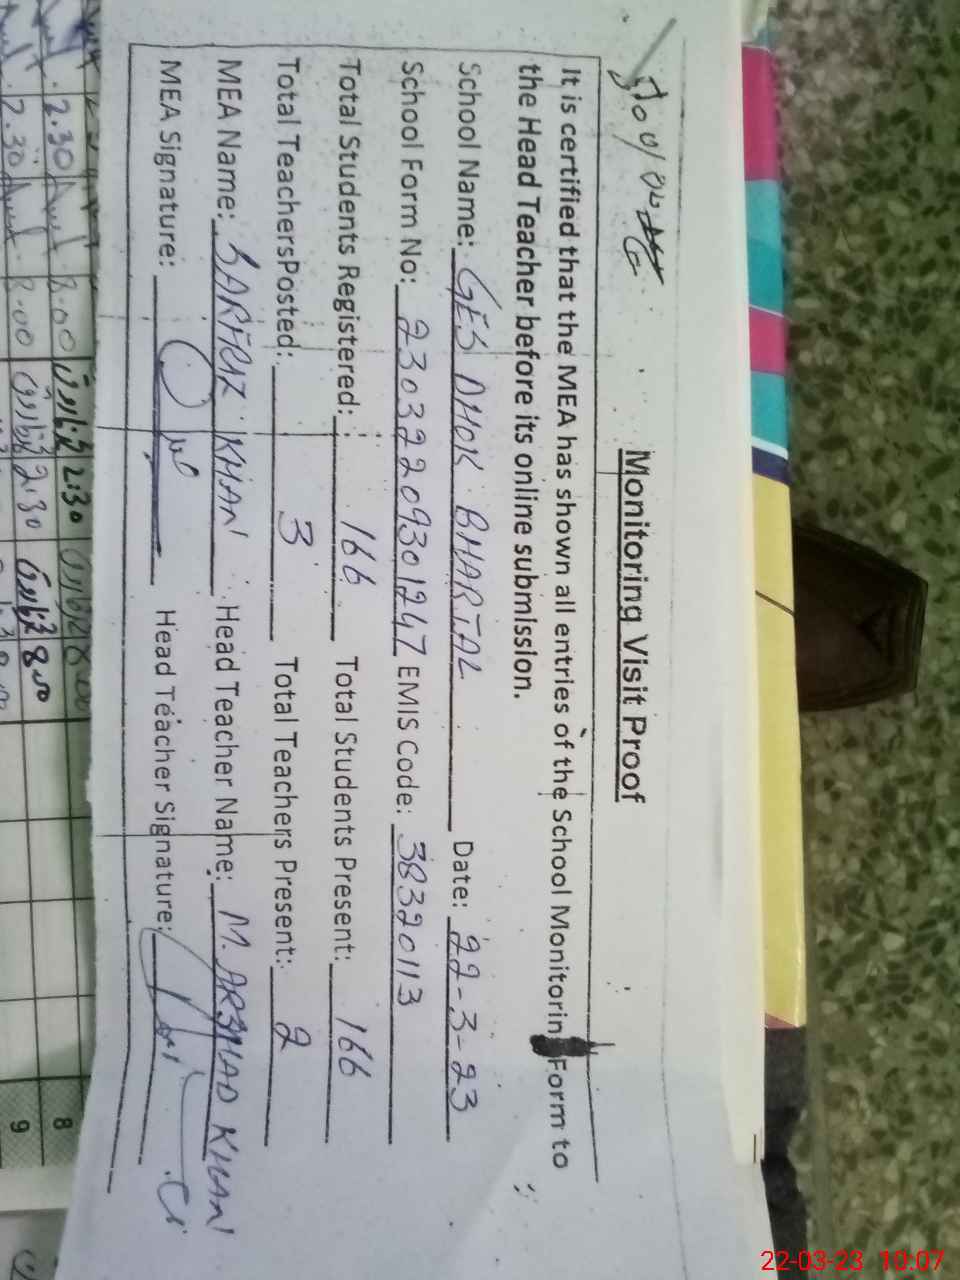 Monitoring Visit Proof
It is certified that the MEA has shown all entries of the School Monitorin Form to
the Head Teacher before its online submission.
School Name: GES DHOK BHARTAL Date: 22-3-23
School Form No: 23032209301247 EMIS Code: 38320113
Total Students Registered: 166 Total Students Present: 166
Total TeachersPosted: 3 Total Teachers Present: 2
MEA Name: SARFRAZ KHAN Head Teacher Name: M. ARSHAD KHAN
MEA Signature: Head Teacher Signature:
2.30 8.00 2:30
2.30 8.00 2:30
8
9
22-03-23 10:07